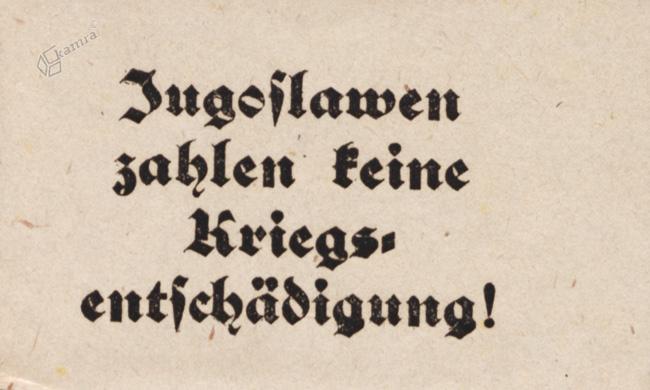 kamra
Jugoslawen
zahlen keine
Kriegs-
entschädigung!